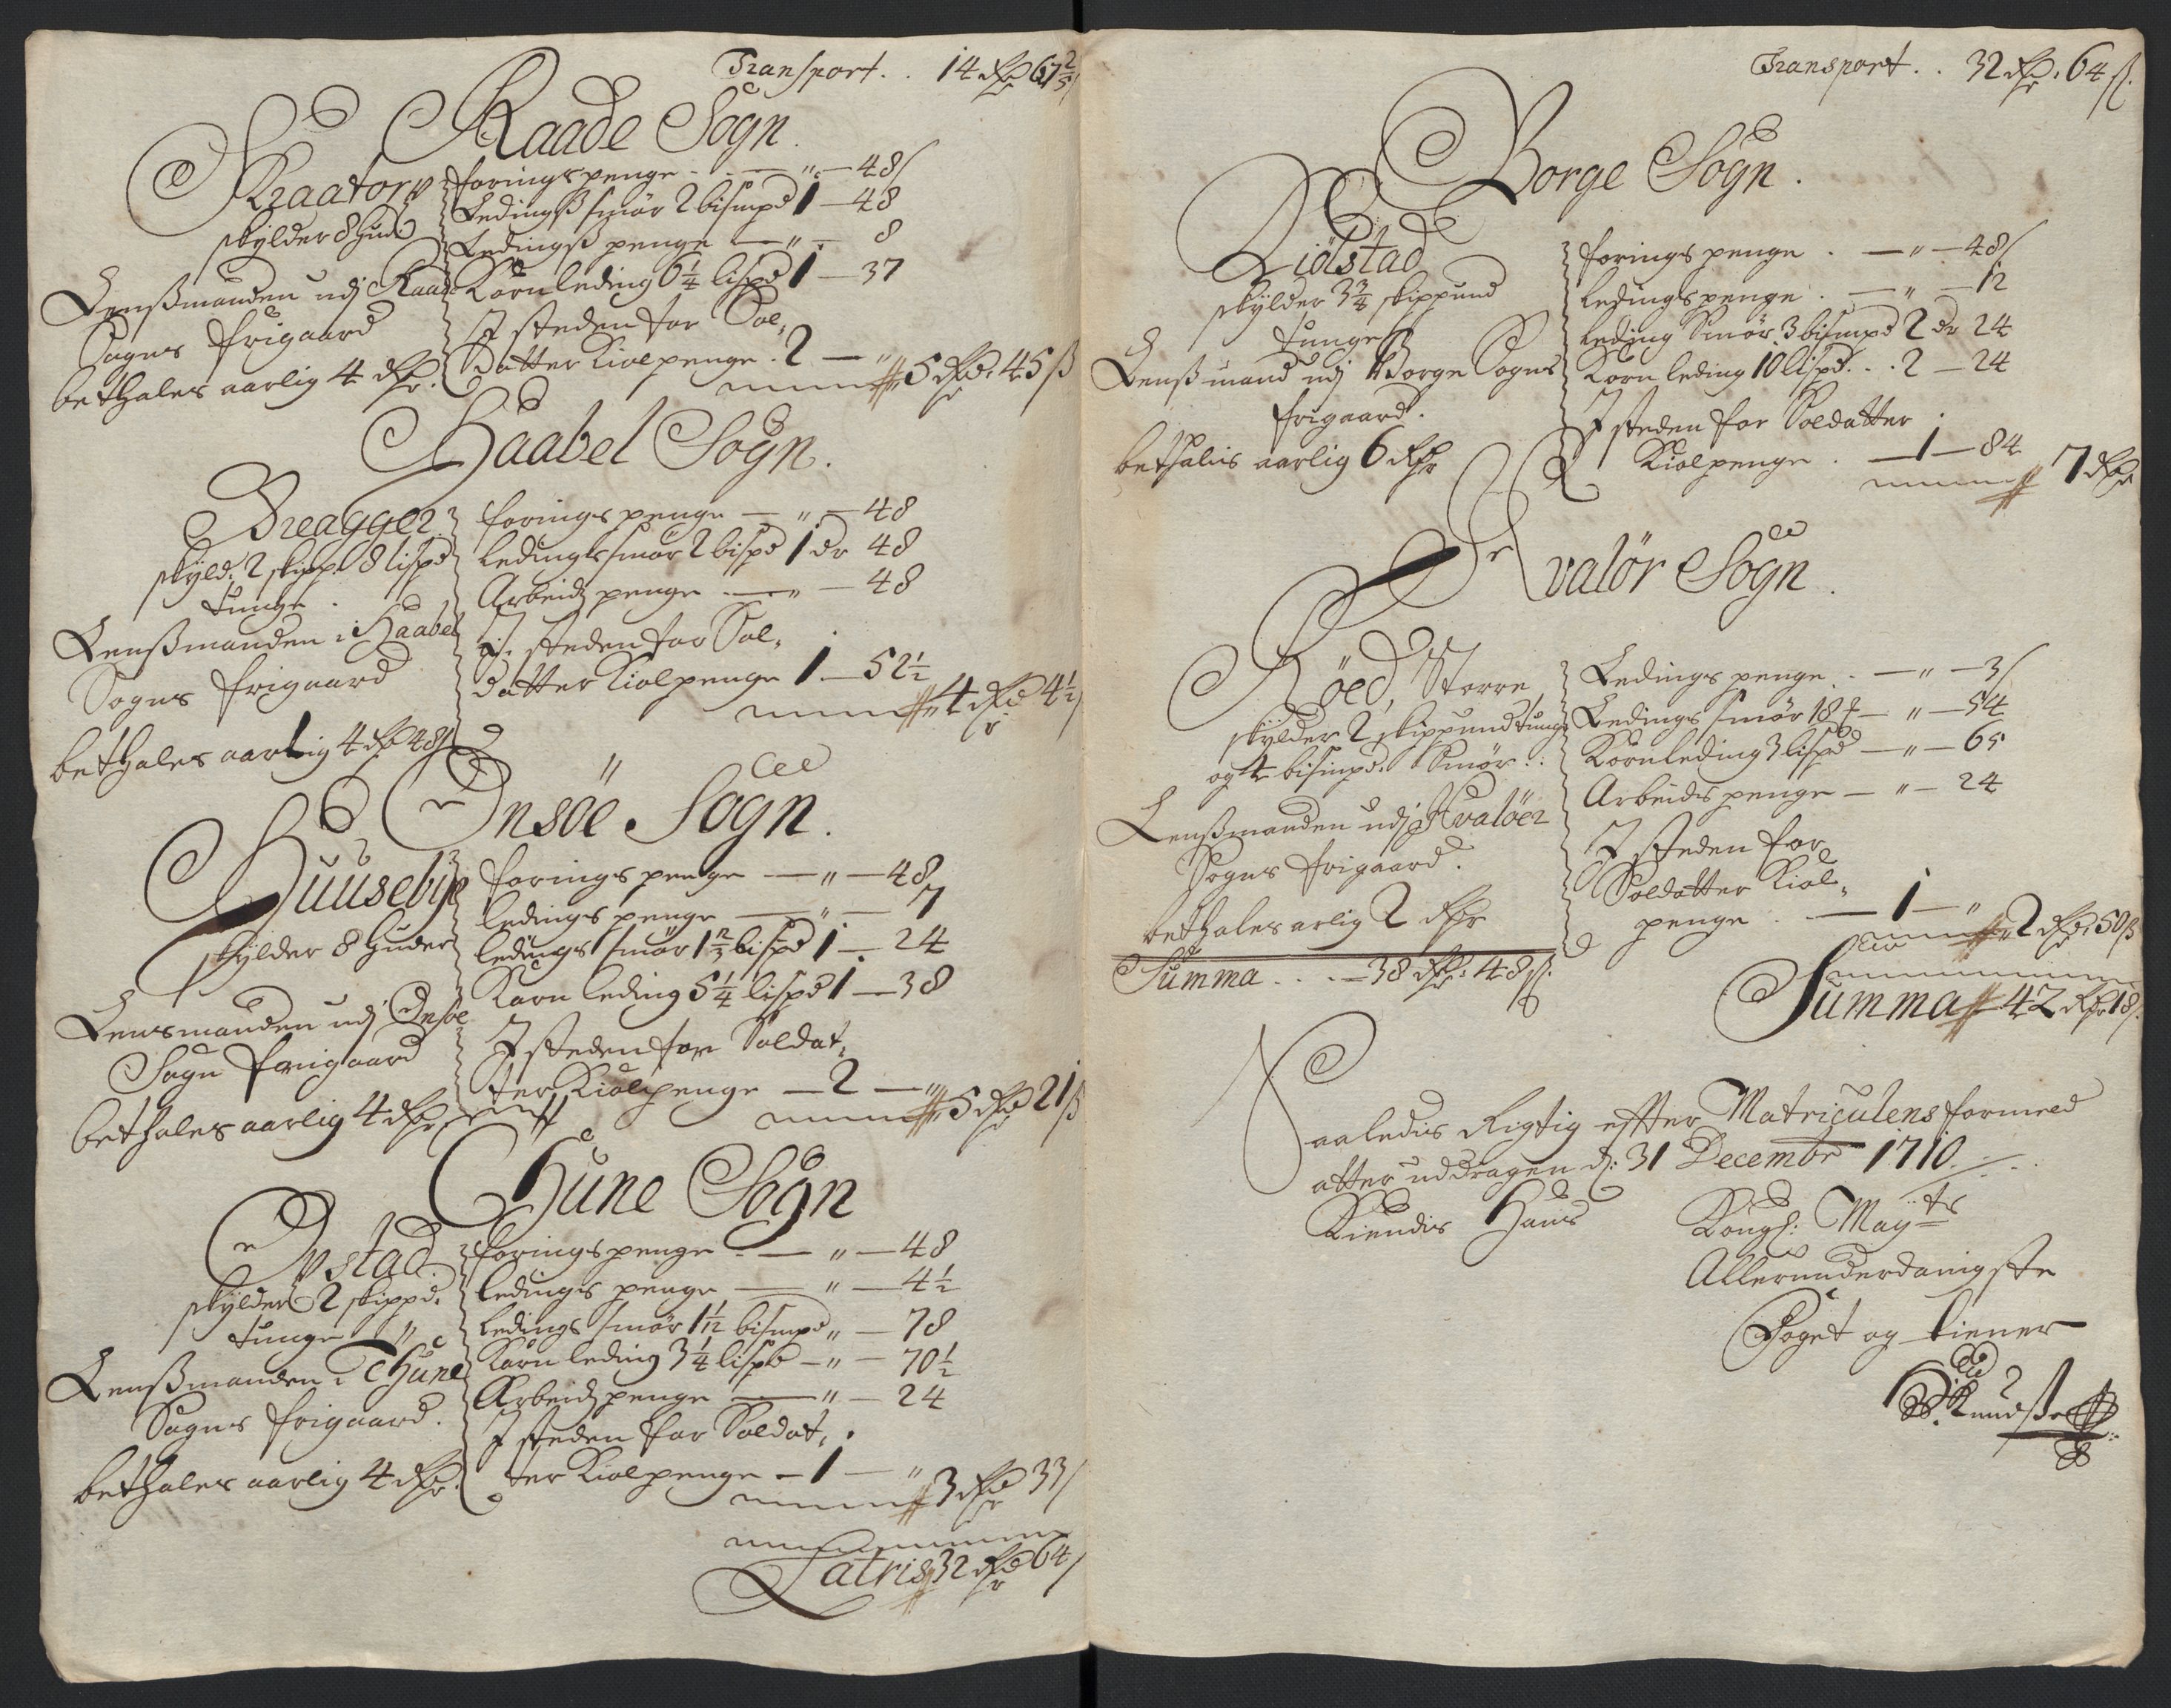 Transport . . 14 dr 67 2/5 ß
Raade Sogn
Kraatorp
skylder 8 huder
Lensmanden udj Raade
Sogns frigaard
bethales aarlig 4 dr.
foringspenge . — " — 48 ß
Ledingß smör 2 bismpd 1 — 48
Ledingß penge — " — 8
Kornleding 6 1/4 lispd 1 — 37
I steden for Sol-
datter Kiolpenge . 2 — "
5 dr 45 ß
Haabel Sogn.
skyld. 2 skipp. 8 lispd
tunge .
Lensmanden i Haabel
Sogns frigaard
bethales aarlig 4 dr 48 ß
forings penge — " — 48
Ledings smör 2 bispd 1 dr 48
Arbeids penge — " — 48
I steden for Sol-
datter Kiolpenge 1 — 52 1/2
4 dr 4 1/2 ß
Onsöe Sogn.
Huusebye
skylder 8 huder
Lensmanden udj Onsöe
Sogn frigaard
bethales aarlig 4 dr
forings penge — " — 48
ledings penge — " — 7
ledings smör 1 2/3 bispd 1 — 24
Korn leding 5 1/4 lispd 1 — 38
I steden for Soldat-
ter Kiolpenge — 2 — "
5 dr 21 ß
Thune Sogn
Opstad
skylder 2 skippd.
tunge
Lensmanden i Thune
Sogns frigaard.
bethales aarlig 4 dr.
forings penge — " — 48
ledings penge — " — 4 1/2
ledings smör 1 1/12 bismpd " — 78
Korn leding 3 1/4 lispd — " — 70 1/2
Arbeids penge — " — 24
I steden for Soldat-
ter Kiolpenge — 1 — "
3 dr 33 ß
Latris 32 dr 64 ß
Transport . . 32 dr. 64 ß.
Borge Sogn.
skylder 3 3/4 skippund
tunge
Lensmand udj Borge Sogns
frigaard.
bethalis aarlig 6 dr
forings penge . — " — 48 ß
ledings penge . — " — 12
leding Smör 3 bismpd 2 dr 24
Korn leding 10 lispd . . 2 — 24
I steden for Soldatter
Kiolpenge . — 1 — 84
7 dr
Hvalör Sogn
Röed, Storre
skylder 2 skippund tunge
og 4 bismpd. Smör :
Lensmanden udj Hvalöer
Sogns frigaard.
bethales arlig 2 dr
Summa . . . — 38 dr. 48 ß.
Ledings penge . — " — 3 ß
Ledings smör 18 # — " — 54
Kornleding 3 lispd — " — 65
Arbeids penge — " — 24
I steden for
Soldatter Kiol-
penge . — 1 — "
2 dr. 50 ß
Summa 42 dr 18 ß.
Saaledis Rigtig effter Matriculens formeld
atter uddragen d: 31 Decembr 1710.
Kiendis Hans Kongl: Mayts
Allerunderdanigste
Foget og tiener